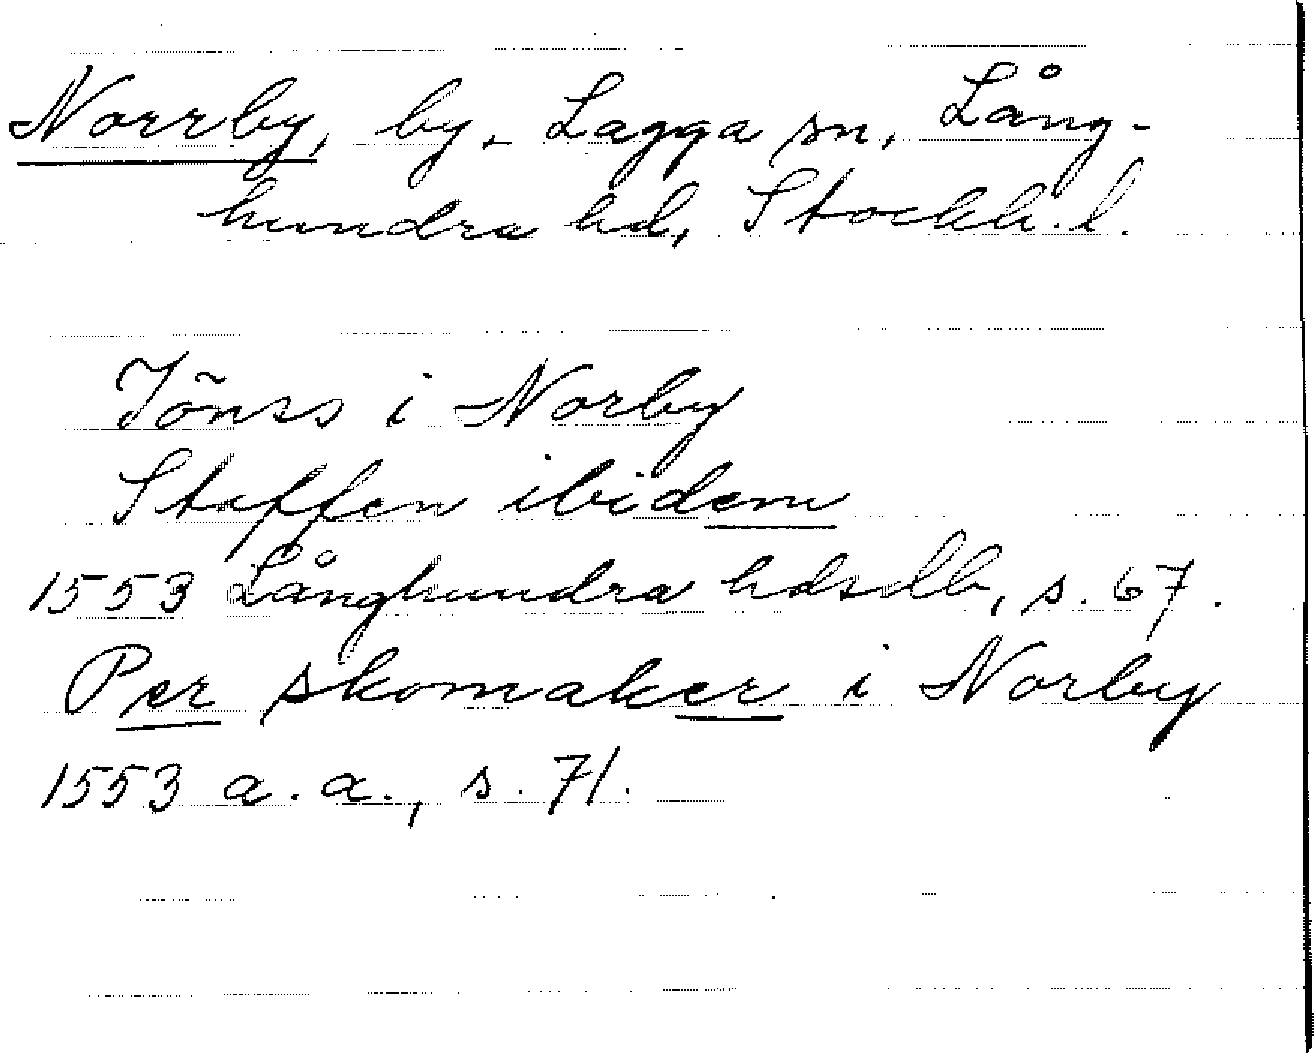 Norrby, by, Lagga sn, Lång-
hundra hd, Stockh. l.
Jönss i Norby
Steffen ibidem
1553 Långhundra hdsdlb, s. 67.
Per skomaker i Norby
1553 a. a., s. 71.